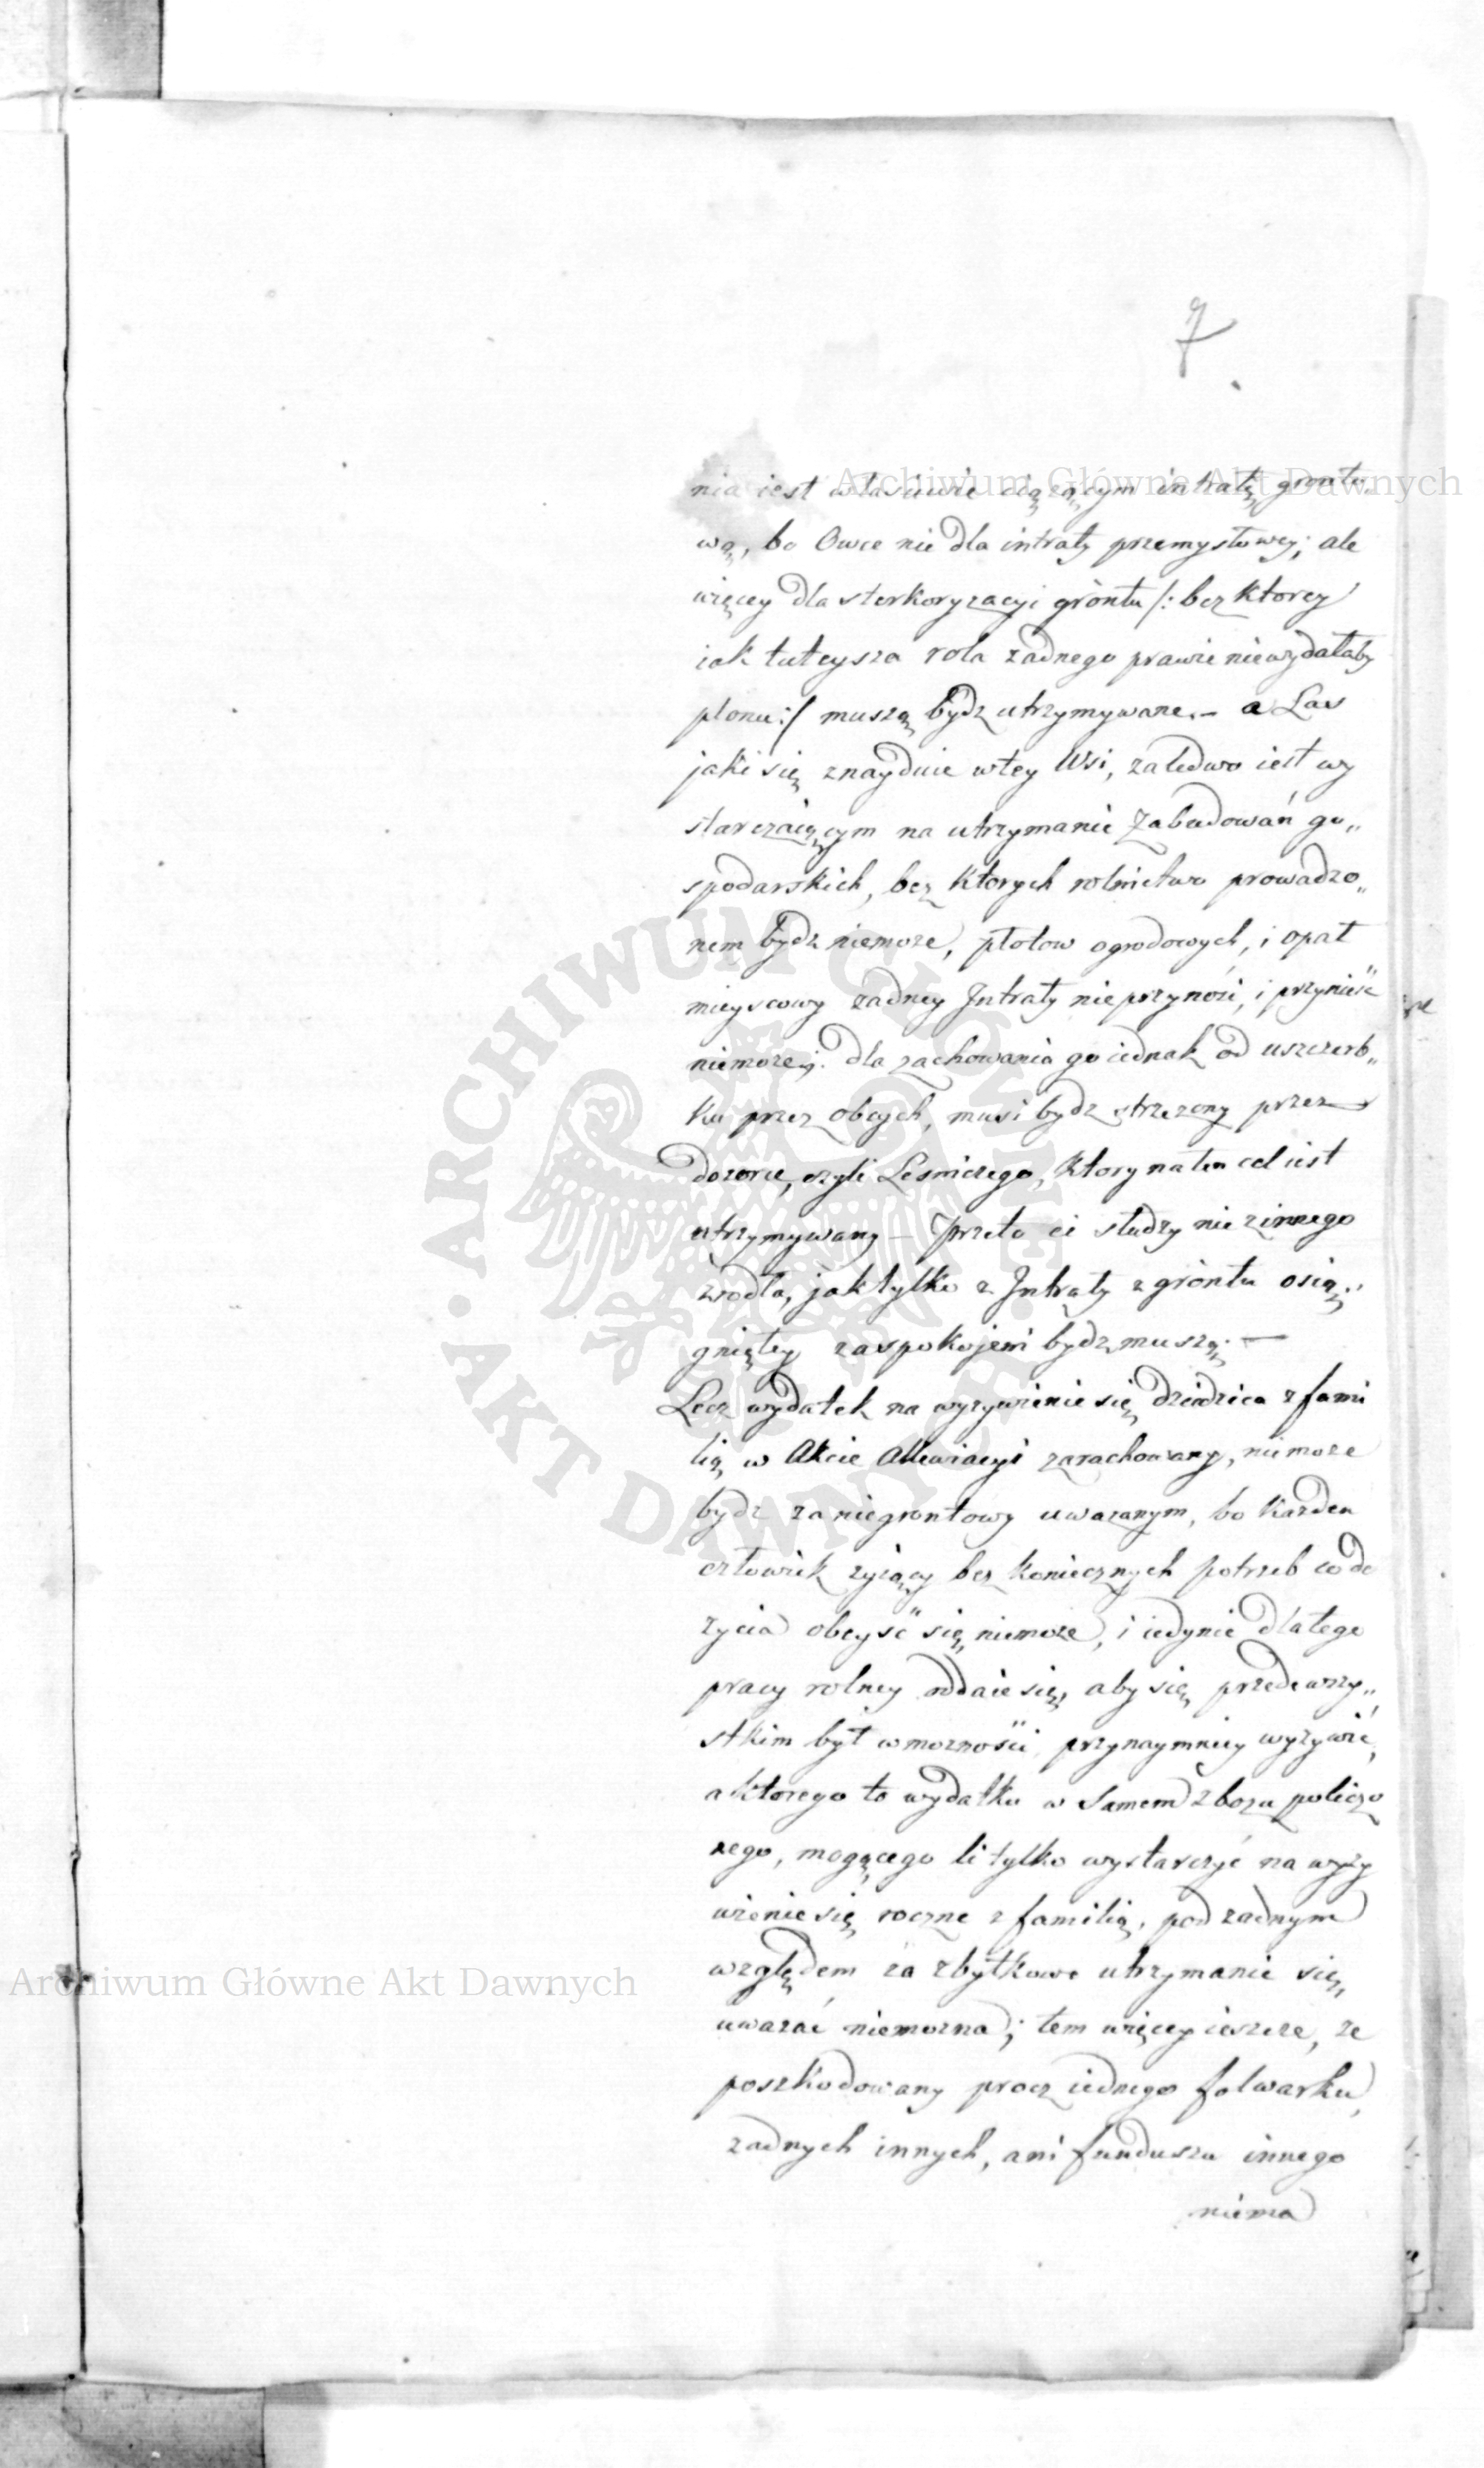 7.
nia iest własciwie ciążącym intratę grónto„
wą, bo Owce nie dla intraty przemysłowey; ale
więcey dla sterkoryzacyi gróntu /: bez ktorey
iak tuteysza rola zadnego prawie niewydałaby
plonu :/ muszą bydz utrzymywane. – a Las
jaki się znayduie w tey Wsi, zaledwo iest wy
starczaiącym na utrzymanie Zabudowań go„
spodarskich, bez ktorych rolnictwo prowadzo„
nem bydz niemoze, płotow ogrodowych, i opał
mieyscowy zadney Intraty nieprzynosi, i przynieść
niemoze; dla zachowania go iednak od uszczerb„
ku przez obcych, musi bydz strzezony przez
dozorcę, czyli Lesniczego, ktory na ten cel iest
utrzymywany – Przeto ci słudzy nie z innego
zrodła, jak tylko z Intraty z gróntu osią„
gniętey zaspokojeni bydz muszą. –
Lecz wydatek na wyzywienie się dziedzica z fami
lią w Akcie Allewiacyi zarachowany, niemoze
bydz za niegrontowy uwazanym, bo kazden
człowiek zyiący bez koniecznych potrzeb co do
zycia obeyść się niemoze, i iedynie dlatego
pracy rolney oddaie się, aby się przedewszy„
stkim był w mozności przynaymniey wyzywić,
a ktorego to wydatku w Samem zbozu policzo
nego, mogącego li tylko wystarczyć na wyzy
wienie się roczne z familią, pod zadnym
względem za zbytkowe utrzymanie się
uwazać niemozna; tem więcey ieszcze, ze
poszkodowany procz iednego folwarku,
zadnych innych, ani funduszu innego
niema
Archiwum Główne Akt Dawnych
Archiwum Główne Akt Dawnych
ARCHIWUM GŁÓWNE
AKT DAWNYCH